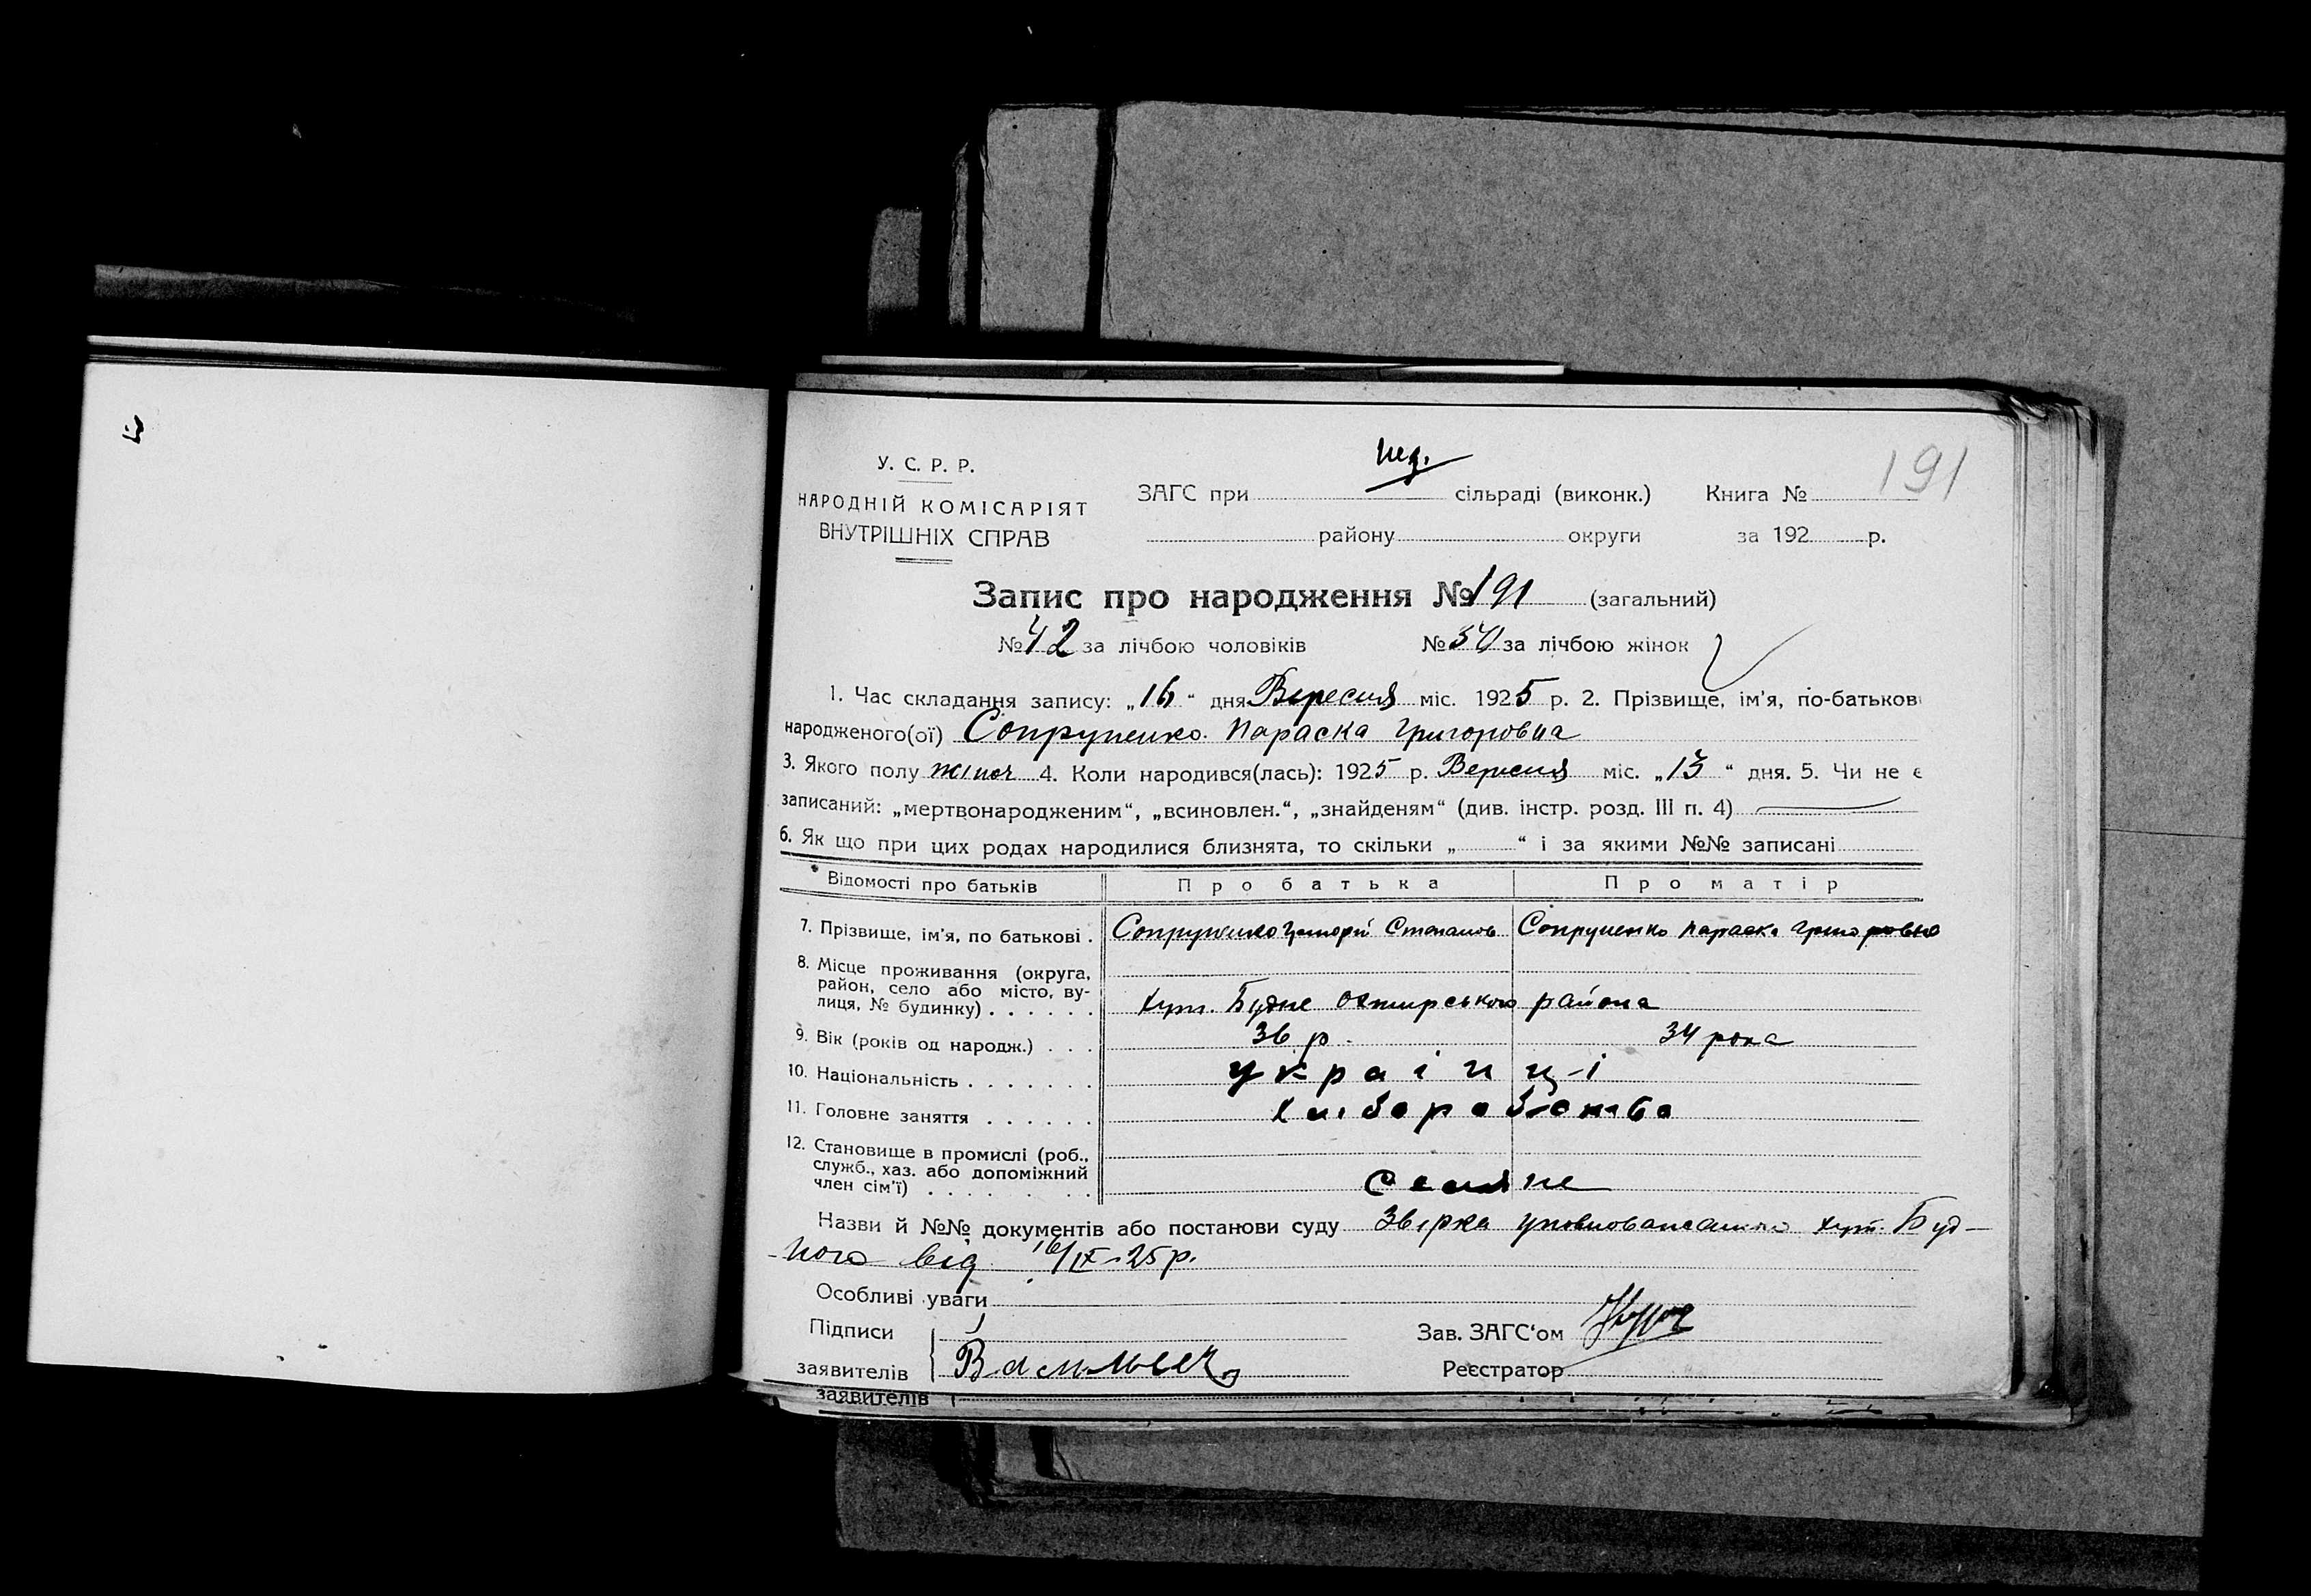 191
У. С. Р. Р.
НАРОДНІЙ КОМІСАРІЯТ
ВНУТРІШНІХ СПРАВ
ЗАГС при сільраді (виконк.) Книга №
району округи за 192 р.
Запис про народження № 191 (загальний)
№ 42 за лічбою чоловіків № 50 за лічбою жінок
1. Час складання запису: „16“ дня Вересня міс. 1925 р. 2. Прізвище, ім'я, по-батькові
народженого(ої) Сопруненко Параска Григоровна
3. Якого полу жіноч 4. Коли народився(лась): 1925 р. Вересня міс. „13“ дня. 5. Чи не є
записаний: „мертвонародженим“, „всиновлен.“, „знайденям“ (див. інстр. розд. III п. 4)
6. Як що при цих родах народилися близнята, то скільки „ “ і за якими №№ записані
Відомості про батьків Про батька Про матір
7. Прізвище, ім'я, по батькові . Сопруненко Григорій Степанов Сопруненко Параска Григоровна
8. Місце проживання (округа,
район, село або місто, ву-
лиця, № будинку) . . . . . . хут. Будне Охтирського района
9. Вік (років од народж.) . . . 36 р. 34 рока
10. Національність . . . . . . . українці
11. Головне заняття . . . . . . хліборобства
12. Становище в промислі (роб.,
служб., хаз. або допоміжний
член сім'ї) . . . . . . . Селяне
Назви й №№ документів або постанови суду Звірка уповноваженого хут. Буд-
-ного від 16/IX-25р.
Особливі уваги
Підписи Зав. ЗАГС'ом
заявителів Реєстратор
заявителів